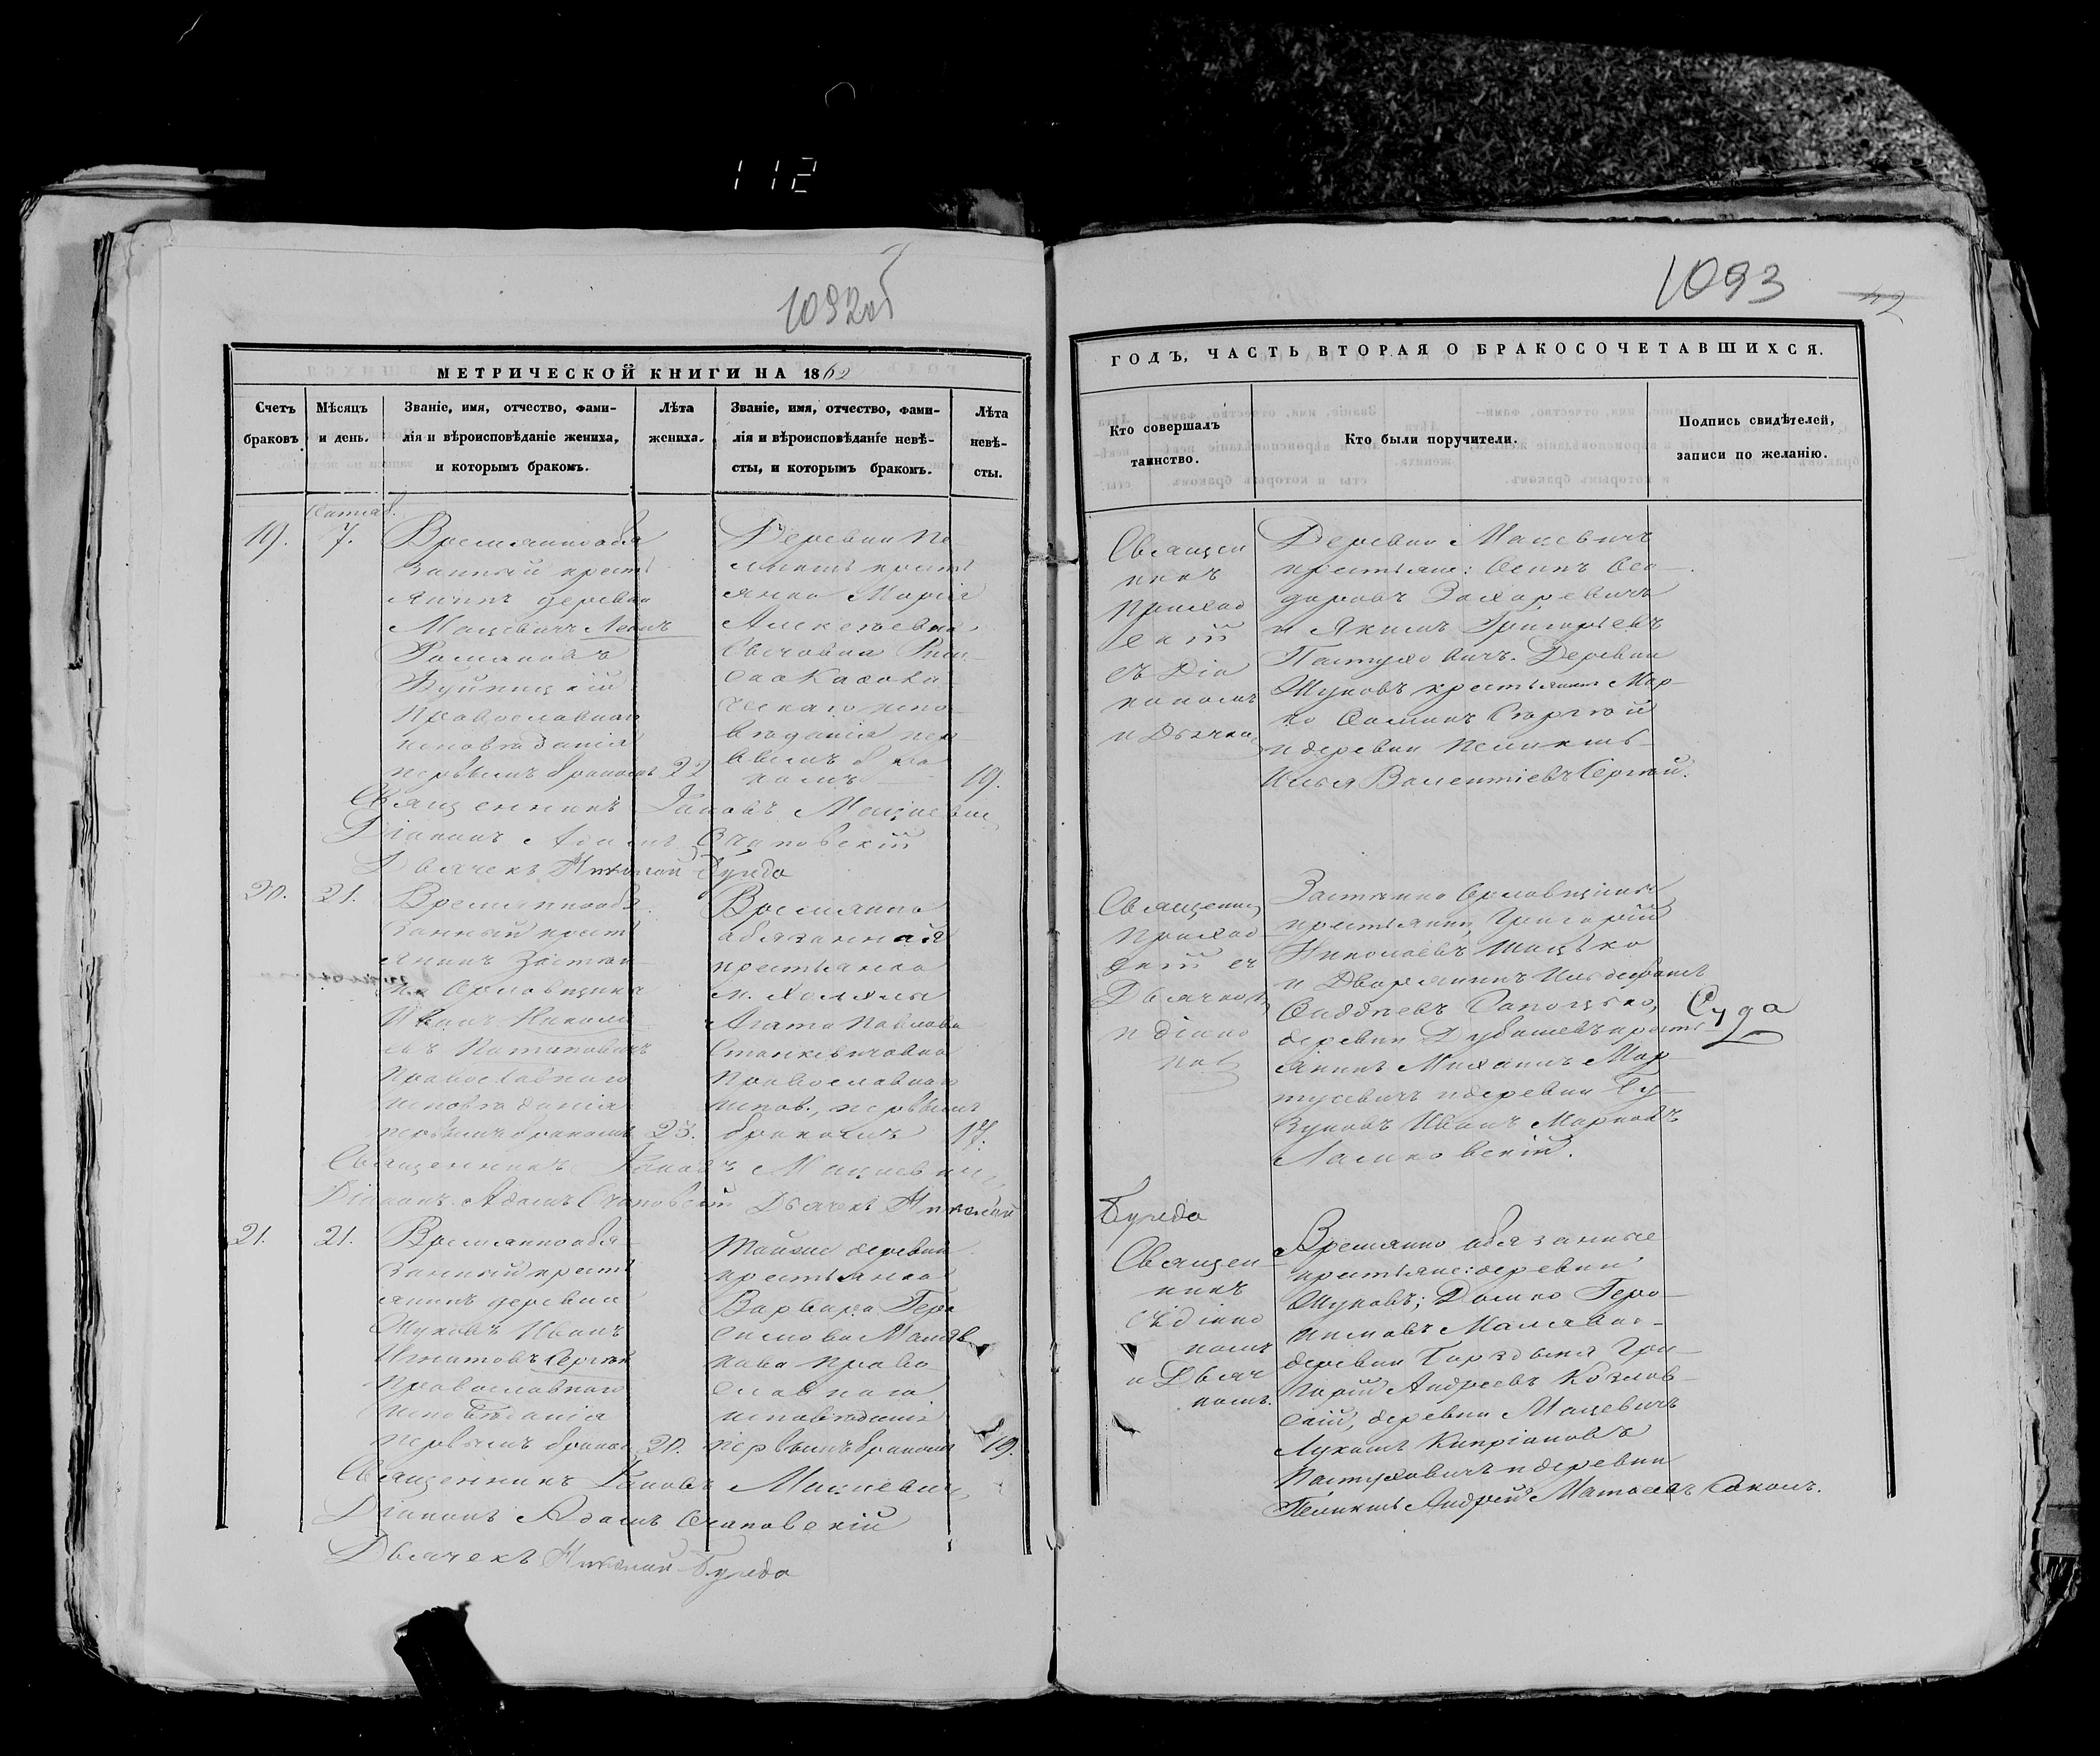 112
1092об
МЕТРИЧЕСКОЙ КНИГИ НА 1862
Счетъ браковъ.
Мѣсяцъ и день.
Званіе, имя, отчество, фами-
лія и вѣроисповѣданіе жениха,
и которымъ бракомъ.
Лѣта жениха.
Званіе, имя, отчество, фами-
лія и вѣроисповѣданіе невѣ-
сты, и которымъ бракомъ.
Лѣта невѣ-
сты.
19.
7.
Временнообя
занный кресть
янинъ деревни
Мацевичъ Леонъ
Романовъ
Буйницкій
Православнаго
исповѣданія
первымъ бракомъ 22
Деревни Пе
кресть
янка Марія
Алексѣевна
Рим
скаКатоли
ческаго испо
вѣданія пер
вымъ бра
комъ 19.
Священникъ Іаковъ Мацкевич
Діаконъ Адамъ Очаповскій
Дьячекъ Николай Бурда
20.
21.
Временнообя
занный кресть
янинъ Застѣн
ка Орловщина
Иванъ Никола
евъ Потаповичъ
Православнаго
исповѣданія
первымъ бракомъ 23.
Временно
обязанная
крестьянка
Агата Павлова
Станкевичовна
Православнаго
испов., первымъ
бракомъ 17.
Священникъ Іаковъ Мацкевич,
Діаконъ Адамъ Очаповскій Дьячекъ Николай
21.
21.
Временнообя
занный кресть
янинъ деревни
Жуковъ Иванъ
Игнатовъ Сергѣй
Православнаго
исповѣданія
первымъ браком 20.
Той же деревни
крестьянка
Варвара Гера
симова Маляв
кова Право
славнаго
исповѣданія
первымъ бракомъ 19.
Священникъ Іаковъ Мацкевич,
Діаконъ Адамъ Очаповскій
Дьячекъ Николай Бурда
1093
42
ГОДЪ, ЧАСТЬ ВТОРАЯ О БРАКОСОЧЕТАВШИХСЯ.
Кто совершалъ
таинство.
Кто были поручители.
Подпись свидѣтелей,
записи по желанію.
Священ
никъ
Приход
скій
съ Діа
кономъ
и Дьячко
Деревни Мацевичъ
крестьяне: Осипъ Ѳео
доровъ Захаревичъ
и Якимъ Григорьевъ
Пастуховичъ. Деревни
Жуковъ крестьянинъ Мар
ко Сергѣй
и деревни Пеликшъ
Илья Валентіевъ Сергѣй.
Священни
Приход
скій съ
Дьячком
и діако
ном
Застѣнка Орловщины
крестьянин Григорій
Николаевъ Шацько
и Дворянинъ Ильдефонсъ
Фаддѣевъ Сапоцько,
деревни Дубашевъ кресть
янинъ Михаилъ Мар
тусевичъ и деревни Гу
зуковъ Иванъ Марковъ
Ламковскій.
Суда
Бурда
Священ
никъ
съ діако
номъ
и Дьяч
комъ.
Временно обязанные
крестьяне: деревни
Жуковъ; Демко Гера
симовъ Малявко
деревни Гри
горій Андреевъ Козлов
скій, деревни Мацевичъ
Лукашъ Кипріановъ
Пастуховичъ и деревни
Пеликшъ Андрей Матвѣевъ Соколъ.